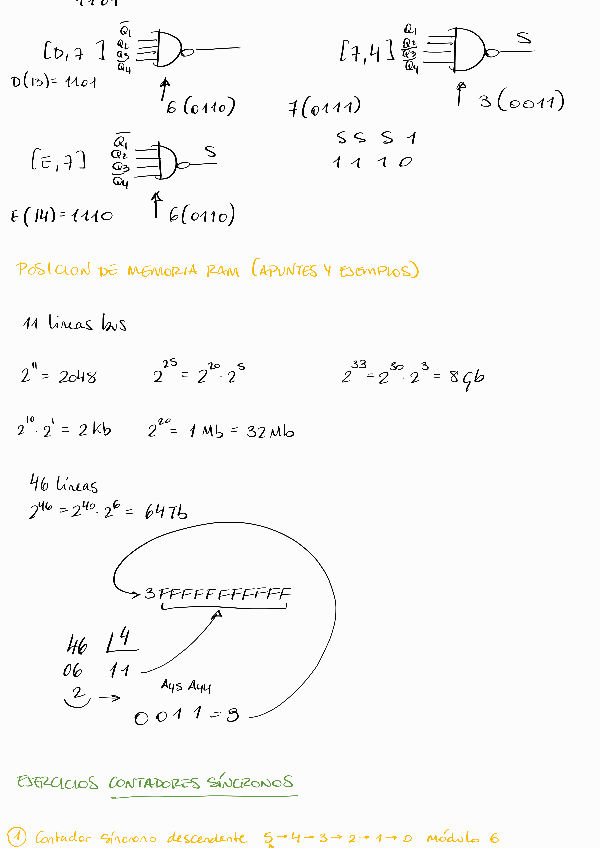 1101
[D,7] Q̅1 Q2 Q̅3 Q̅4
D(13)=1101
6(0110)
[7,4] Q1 Q̅2 Q̅3 Q̅4 S
7(0111)
3(0011)
S S S 1
1 1 1 0
[E,7] Q̅1 Q2 Q̅3 Q̅4 S
E(14)=1110
6(0110)
POSICION DE MEMORIA RAM (APUNTES Y EJEMPLOS)
11 líneas bus
2^11 = 2048 2^25 = 2^20 · 2^5 2^33 = 2^30 · 2^3 = 8 Gb
2^10 · 2^1 = 2 Kb 2^20 = 1 Mb = 32 Mb
46 líneas
2^46 = 2^40 · 2^6 = 64 Tb
3FFFFFFFFFFF
46 4
06 11
2 → A45 A44
0 0 1 1 = 3
EJERCICIOS CONTADORES SÍNCRONOS
1 Contador síncrono descendente 5→4→3→2→1→0 módulo 6